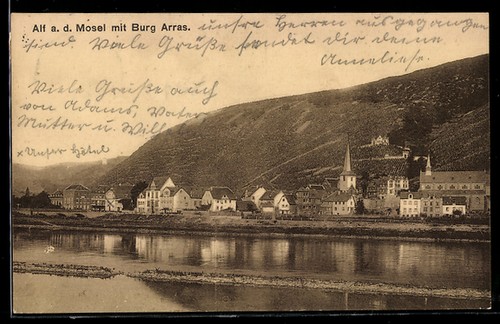 Alf a. d. Mosel mit Burg Arras.
unsre Herren ausgegangen
sind. Viele Grüße sendet dir, deine
Anneliese.
Viele Grüße auch
von Adams, Vater
Mutter u. Willi
x Unser Hotel